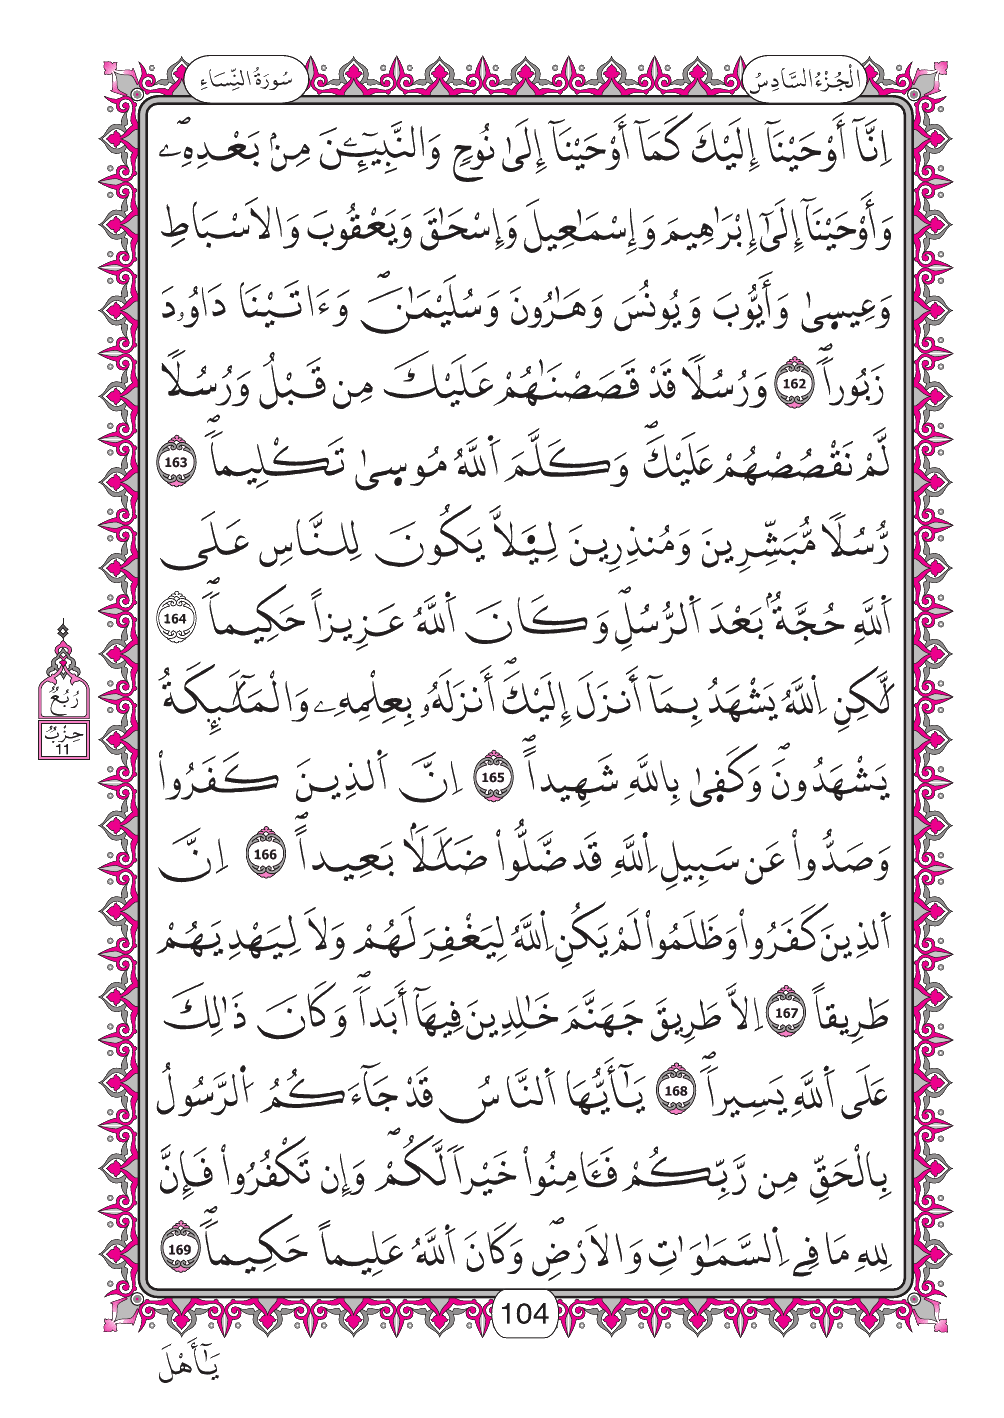 الْجُزْءُ السَّادِسُ
سُورَةُ النِّسَاءِ
اِنَّآ أَوْحَيْنَآ إِلَيْكَ كَمَآ أَوْحَيْنَآ إِلَىٰ نُوحٍ وَالنَّبِيِٓـِٔنَ مِنۢ بَعْدِهِۦۖ
وَأَوْحَيْنَآ إِلَىٰٓ إِبْرَاهِيمَ وَإِسْمَاعِيلَ وَإِسْحَاقَ وَيَعْقُوبَ وَالَاسْبَاطِ
وَعِيسىٰ وَأَيُّوبَ وَيُونُسَ وَهَارُونَ وَسُلَيْمَانَۖ وَءَاتَيْنَا دَاوُۥدَ
زَبُوراًۖ 162 وَرُسُلًا قَدْ قَصَصْنَاهُمْ عَلَيْكَ مِن قَبْلُ وَرُسُلًا
لَّمْ نَقْصُصْهُمْ عَلَيْكَۖ وَكَلَّمَ اَ۬للَّهُ مُوسىٰ تَكْلِيماًۖ 163
رُّسُلًا مُّبَشِّرِينَ وَمُنذِرِينَ لِيَلَّا يَكُونَ لِلنَّاسِ عَلَى
اَ۬للَّهِ حُجَّةُۢ بَعْدَ اَ۬لرُّسُلِۖ وَكَانَ اَ۬للَّهُ عَزِيزاً حَكِيماًۖ 164
لَّكِنِ اِ۬للَّهُ يَشْهَدُ بِمَآ أَنزَلَ إِلَيْكَۖ أَنزَلَهُۥ بِعِلْمِهِۦ وَالْمَلَٰٓئِكَةُ
يَشْهَدُونَۖ وَكَفىٰ بِاللَّهِ شَهِيداًۖ 165 اِنَّ اَ۬لذِينَ كَفَرُواْ
وَصَدُّواْ عَن سَبِيلِ اِ۬للَّهِ قَد ضَّلُّواْ ضَلَٰلَاۢ بَعِيداًۖ 166 اِنَّ
اَ۬لذِينَ كَفَرُواْ وَظَلَمُواْ لَمْ يَكُنِ اِ۬للَّهُ لِيَغْفِرَ لَهُمْ وَلَا لِيَهْدِيَهُمْ
طَرِيقاً 167 اِلَّا طَرِيقَ جَهَنَّمَ خَالِدِينَ فِيهَآ أَبَداًۖ وَكَانَ ذَالِكَ
عَلَى اَ۬للَّهِ يَسِيراًۖ 168 يَٰٓأَيُّهَا اَ۬لنَّاسُ قَدْ جَآءَكُمُ اُ۬لرَّسُولُ
بِالْحَقِّ مِن رَّبِّكُمْ فَـَٔامِنُواْ خَيْراً لَّكُمْۖ وَإِن تَكْفُرُواْ فَإِنَّ
لِلهِ مَا فِي اِ۬لسَّمَٰوَٰتِ وَالَارْضِۖ وَكَانَ اَ۬للَّهُ عَلِيماً حَكِيماًۖ 169
رُبُعُ
حِزْبُ
11
104
يَٰٓأَهْلَ